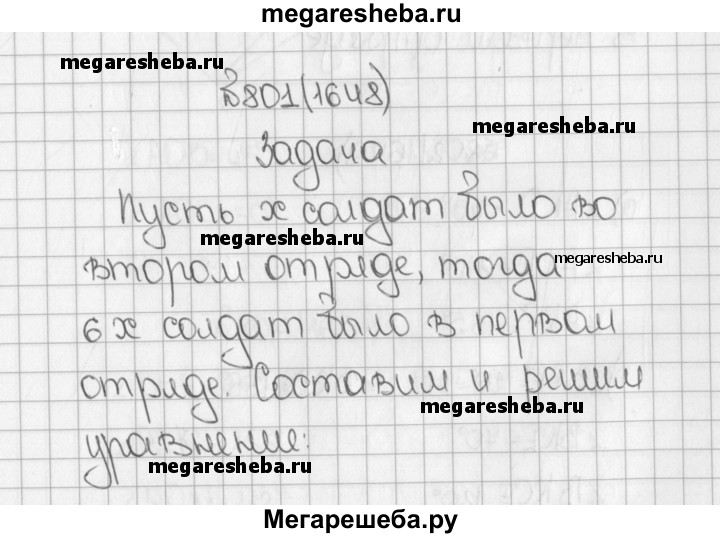 megaresheba.ru
megaresheba.ru
№801(1648)
megaresheba.ru
Задача
Пусть x солдат было во
megaresheba.ru
втором отряде, тогда
megaresheba.ru
6x солдат было в первом
отряде. Составим и решим
megaresheba.ru
уравнение:
megaresheba.ru
Мегарешеба.ру